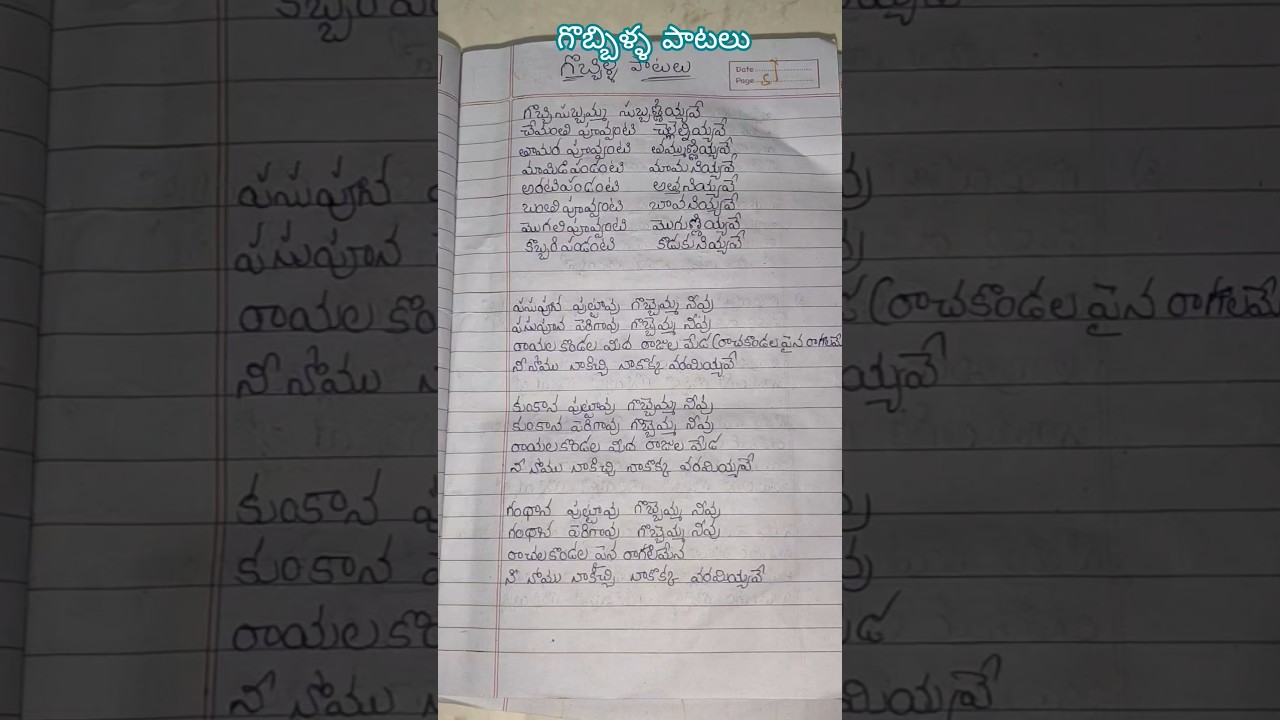 గొబ్బిళ్ళ పాటలు
గొబ్బిళ్ళ పాటలు
Date
Page 5
గొబ్బిసుబ్బమ్మ సుబ్బణ్ణియ్యవే
చేమంతి పూవ్వంటి చెల్లెల్నియ్యవే
తామర పూవ్వంటి తమ్ముణ్ణియ్యవే
మామిడిపండంటి మామనియ్యవే
అరటిపండంటి అత్తనియ్యవే
బంతిపూవ్వంటి బావనియ్యవే
మొగలిపూవ్వంటి మొగుణ్ణియ్యవే
కొబ్బరిపండంటి కొడుకునియ్యవే
పసుపున పుట్టావు గొబ్బెమ్మ నీవు
పసుపున పెరిగావు గొబ్బెమ్మ నీవు
రాయలకొండల మీద రాజుల మేడ (రాచకొండల పైన రాగాలమే
నీ నోము నాకిచ్చి నాకొక్క వరమియ్యవే
కుంకాన పుట్టావు గొబ్బెమ్మ నీవు
కుంకాన పెరిగావు గొబ్బెమ్మ నీవు
రాయలకొండల మీద రాజుల మేడ
నీ నోము నాకిచ్చి నాకొక్క వరమియ్యవే
గంధాన పుట్టావు గొబ్బెమ్మ నీవు
గంధాన పెరిగావు గొబ్బెమ్మ నీవు
రాచలకొండల పైన రాగలమేన
నీ నోము నాకిచ్చి నాకొక్క వరమియ్యవే